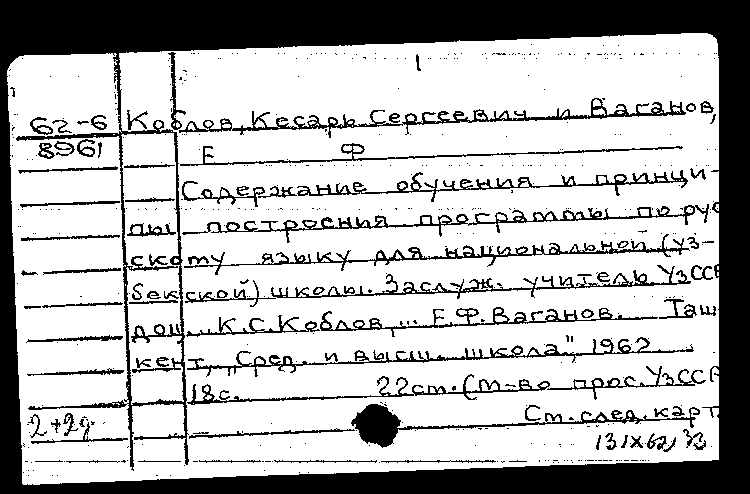 1
62-6 Коблов, Кесарь Сергеевич и Ваганов,
8961 Е Ф
Содержание обучения и принци-
пы построения программы по рус
скому языку для национальной (уз-
бекской) школы. Заслуж. учитель УзССР
доц. .. К.С.Коблов, ... Е.Ф.Ваганов. Таш
кент, „Сред. и высш. школа", 1962
18с. 22см. (М-во прос. УзССР
2+2д Ст. след. карт
13 IX 62